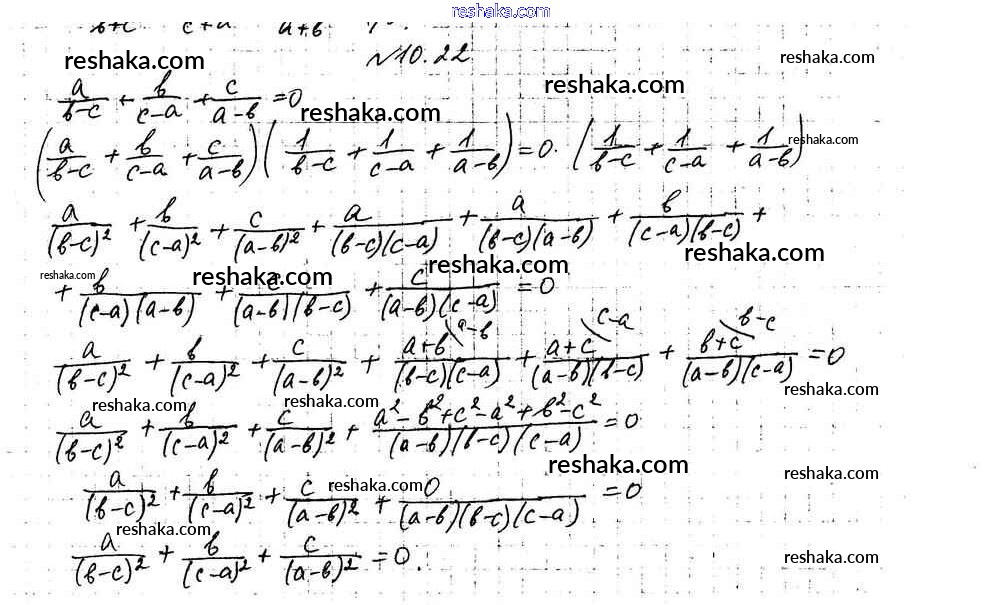 reshaka.com
b+c c+a a+b
№10.22
reshaka.com
reshaka.com
reshaka.com
a/(b-c) + b/(c-a) + c/(a-b) = 0
reshaka.com
(a/(b-c) + b/(c-a) + c/(a-b)) (1/(b-c) + 1/(c-a) + 1/(a-b)) = 0 · (1/(b-c) + 1/(c-a) + 1/(a-b))
reshaka.com
a/(b-c)² + b/(c-a)² + c/(a-b)² + a/((b-c)(c-a)) + a/((b-c)(a-b)) + b/((c-a)(b-c)) +
reshaka.com
reshaka.com
reshaka.com
reshaka.com
+ b/((c-a)(a-b)) + c/((a-b)(b-c)) + c/((a-b)(c-a)) = 0
a-b c-a b-c
a/(b-c)² + b/(c-a)² + c/(a-b)² + (a+b)/((b-c)(c-a)) + (a+c)/((a-b)(b-c)) + (b+c)/((a-b)(c-a)) = 0
reshaka.com
reshaka.com
reshaka.com
a/(b-c)² + b/(c-a)² + c/(a-b)² + (a²-b²+c²-a²+b²-c²)/((a-b)(b-c)(c-a)) = 0
reshaka.com
reshaka.com
reshaka.com
a/(b-c)² + b/(c-a)² + c/(a-b)² + 0/((a-b)(b-c)(c-a)) = 0
reshaka.com
a/(b-c)² + b/(c-a)² + c/(a-b)² = 0.
reshaka.com